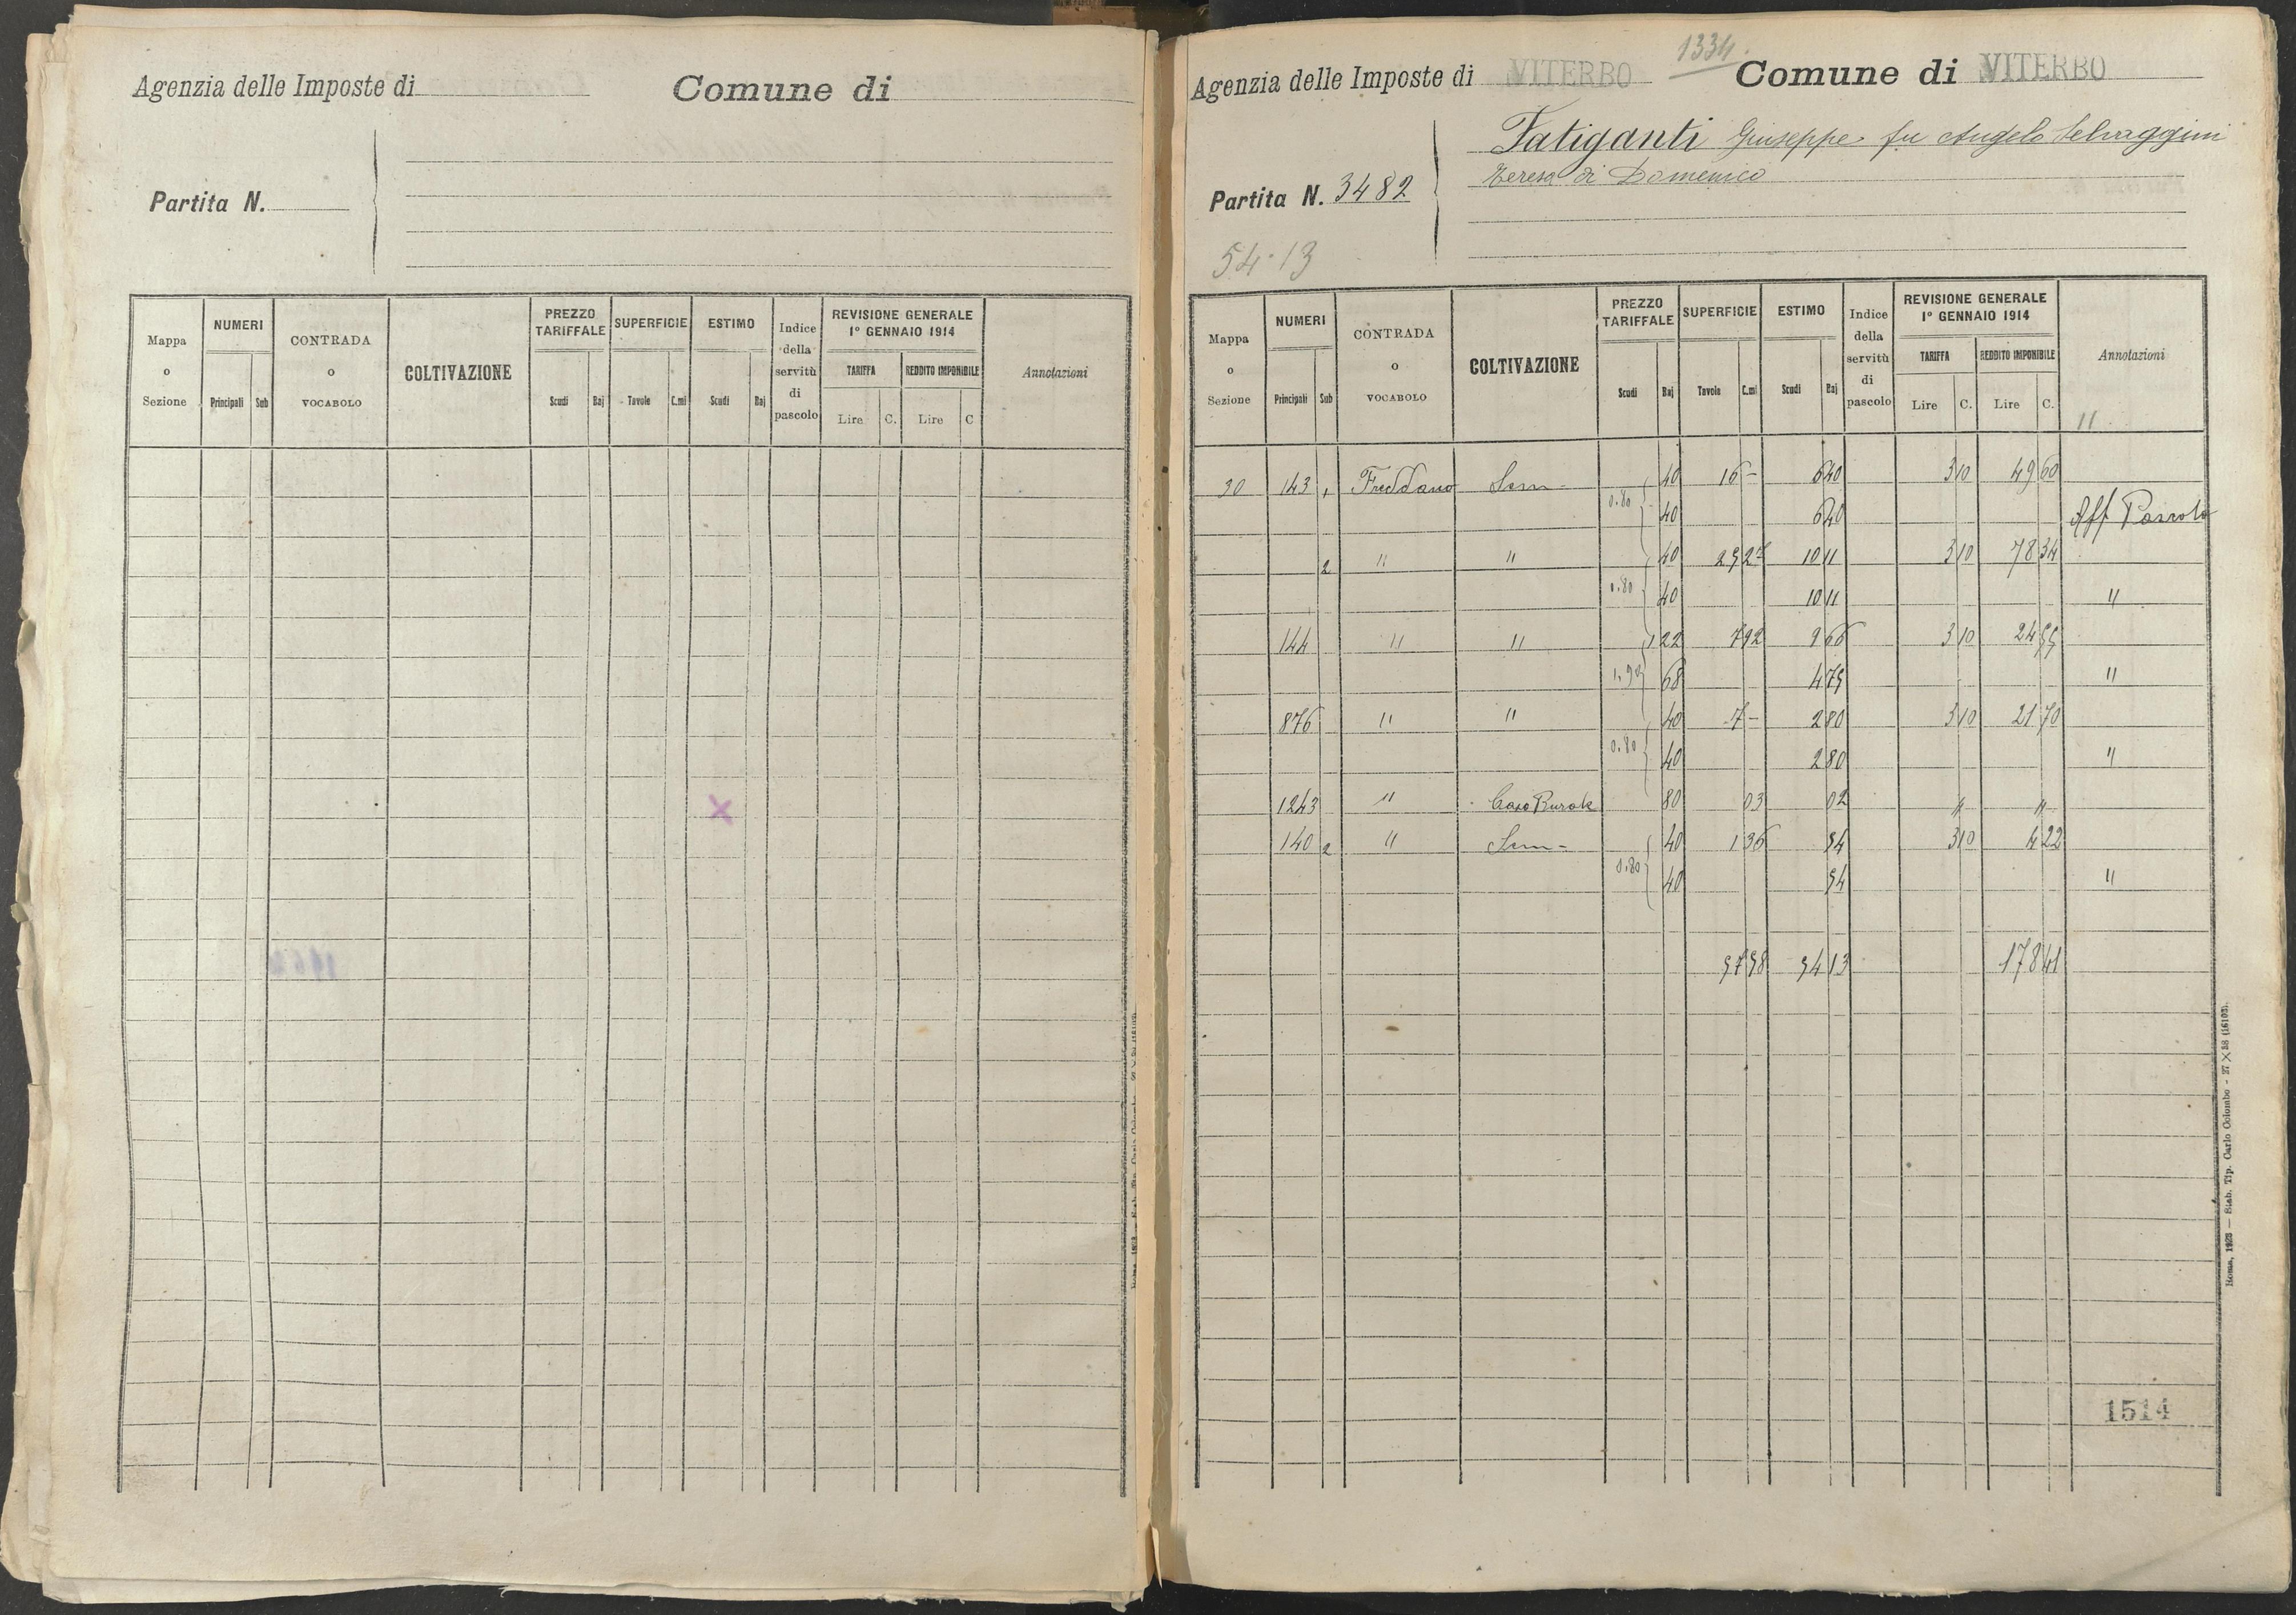 Agenzia delle Imposte di
Comune di
Partita N.
Mappa o Sezione
NUMERI
Principali Sub
CONTRADA o VOCABOLO
COLTIVAZIONE
PREZZO TARIFFALE
Scudi Baj
SUPERFICIE
Tavole C.mi
ESTIMO
Scudi Baj
Indice della servitù di pascolo
REVISIONE GENERALE
1º GENNAIO 1914
TARIFFA
Lire C.
REDDITO IMPONIBILE
Lire C
Annotazioni
1334
Agenzia delle Imposte di VITERBO
Comune di VITERBO
Fatiganti Giuseppe fu Angelo Selvaggini
Teresa di Domenico
Partita N. 3482
54.13
Mappa o Sezione
NUMERI
Principali Sub
CONTRADA o VOCABOLO
COLTIVAZIONE
PREZZO TARIFFALE
Scudi Baj
SUPERFICIE
Tavole C.mi
ESTIMO
Scudi Baj
Indice della servitù di pascolo
REVISIONE GENERALE
1º GENNAIO 1914
TARIFFA
Lire C.
REDDITO IMPONIBILE
Lire C.
Annotazioni
"
30 143 1 Freddano Sem- 40 16 - 6 40 3 10 49 60
0.80 40 6 40 Aff.
2 " " 40 25 27 10 11 3 10 78 34
0.80 40 10 11 "
144 " " 1 22 7 92 9 66 3 10 24 55
1.90 68 4 75 "
876 " " 40 7 - 2 80 3 10 21 70
0.80 40 2 80 "
1243 " Casa Rurale 80 03 02 " "
140 2 " Sem- 40 1 36 54 3 10 4 22
0.80 40 54 "
57 58 54 13 178 41
1514
Roma, 1923 — Stab. Tip. Carlo Colombo - 27 × 38 (16103).